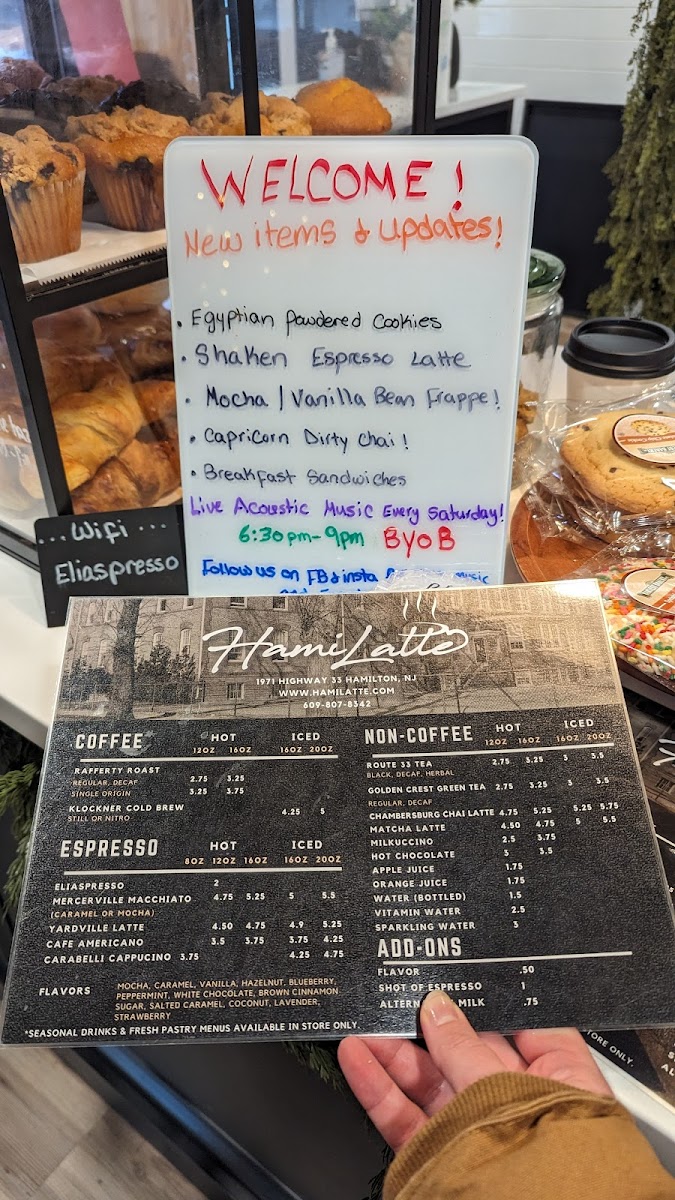 WELCOME!
New items & updates!
• Egyptian Powdered Cookies
• Shaken Espresso Latte
• Mocha / Vanilla Bean Frappe!
• Capricorn Dirty Chai!
• Breakfast Sandwiches
Live Acoustic Music Every Saturday!
6:30pm-9pm BYOB
Follow us on FB & insta Music
...Wifi...
Eliaspresso
HamiLatte
1971 HIGHWAY 33 HAMILTON, NJ
WWW.HAMILATTE.COM
609-807-8342
COFFEE HOT ICED
12OZ 16OZ 16OZ 20OZ
RAFFERTY ROAST
REGULAR, DECAF 2.75 3.25
SINGLE ORIGIN 3.25 3.75
KLOCKNER COLD BREW 4.25 5
STILL OR NITRO
ESPRESSO HOT ICED
8OZ 12OZ 16OZ 16OZ 20OZ
ELIASPRESSO 2
MERCERVILLE MACCHIATO 4.75 5.25 5 5.5
(CARAMEL OR MOCHA)
YARDVILLE LATTE 4.50 4.75 4.9 5.25
CAFE AMERICANO 3.5 3.75 3.75 4.25
CARABELLI CAPPUCINO 3.75 4.25 4.75
FLAVORS MOCHA, CARAMEL, VANILLA, HAZELNUT, BLUEBERRY,
PEPPERMINT, WHITE CHOCOLATE, BROWN CINNAMON
SUGAR, SALTED CARAMEL, COCONUT, LAVENDER,
STRAWBERRY
*SEASONAL DRINKS & FRESH PASTRY MENUS AVAILABLE IN STORE ONLY.
NON-COFFEE HOT ICED
12OZ 16OZ 16OZ 20OZ
ROUTE 33 TEA 2.75 3.25 3 3.5
BLACK, DECAF, HERBAL
GOLDEN CREST GREEN TEA 2.75 3.25 3 3.5
REGULAR, DECAF
CHAMBERSBURG CHAI LATTE 4.75 5.25 5.25 5.75
MATCHA LATTE 4.50 4.75 5 5.5
MILKUCCINO 2.5 3.75
HOT CHOCOLATE 3 3.5
APPLE JUICE 1.75
ORANGE JUICE 1.75
WATER (BOTTLED) 1.5
VITAMIN WATER 2.5
SPARKLING WATER 3
ADD-ONS
FLAVOR .50
SHOT OF ESPRESSO 1
MILK .75
TORE ONLY.